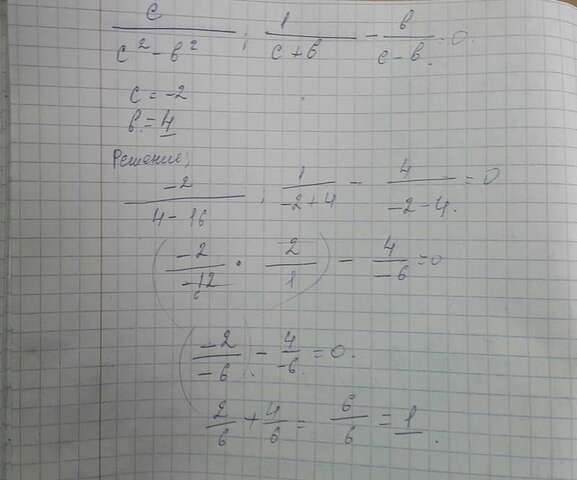 c/(c² - b²) : 1/(c + b) - b/(c - b) = 0.
c = -2
b = 4
Решение:
-2/(4 - 16) : 1/(-2 + 4) - 4/(-2 - 4) = 0
(-2/-12 · 2/1) - 4/-6 = 0
6
(-2/-6) - 4/-6 = 0.
2/6 + 4/6 = 6/6 = 1.